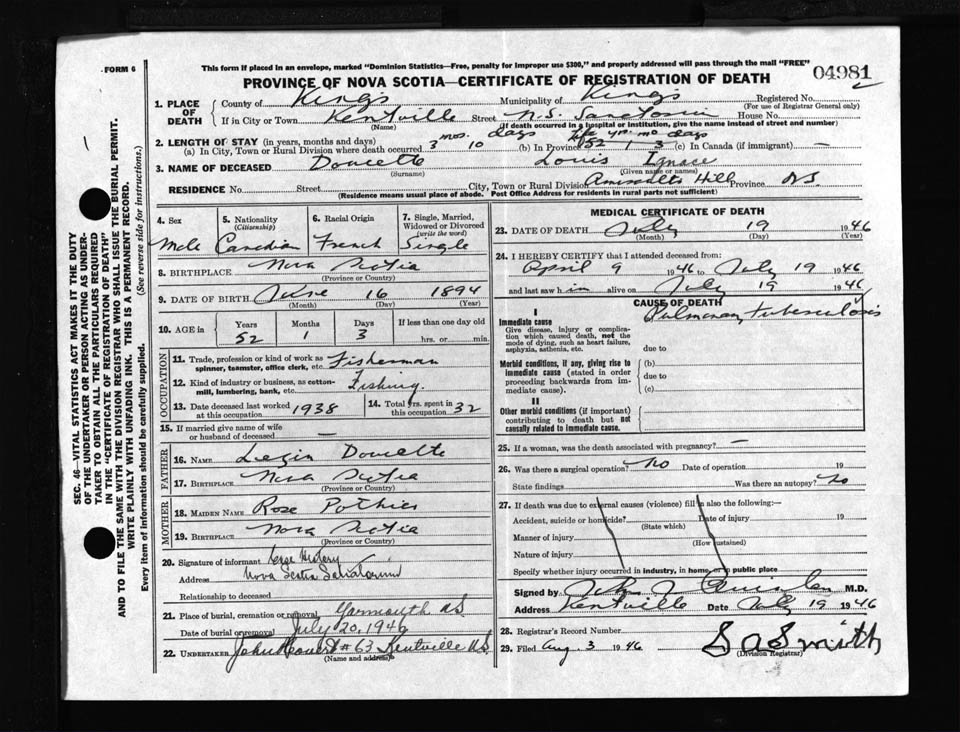 FORM 6
This form if placed in an envelope, marked "Dominion Statistics—Free, penalty for improper use $300," and properly addressed will pass through the mail "FREE"
PROVINCE OF NOVA SCOTIA—CERTIFICATE OF REGISTRATION OF DEATH
04981
2
1. PLACE OF DEATH
County of Kings Municipality of Kings Registered No.
(For use of Registrar General only)
If in City or Town Kentville Street N.S. Sanatorium House No.
(Name) (If death occurred in a hospital or institution, give the name instead of street and number)
2. LENGTH OF STAY (in years, months and days) mos. days life yrs. mo days
(a) In City, Town or Rural Division where death occurred 3 10 (b) In Province 52 1 3 (c) In Canada (if immigrant) —
3. NAME OF DECEASED Doucette Louis Ignace
(Surname) (Given name or names)
RESIDENCE No. Street City, Town or Rural Division Amiraults Hill Province N.S.
(Residence means usual place of abode. Post Office Address for residents in rural parts not sufficient)
SEC. 46—VITAL STATISTICS ACT MAKES IT THE DUTY
OF THE UNDERTAKER OR PERSON ACTING AS UNDER-
TAKER TO OBTAIN ALL THE PARTICULARS REQUIRED
IN THE "CERTIFICATE OF REGISTRATION OF DEATH"
AND TO FILE THE SAME WITH THE DIVISION REGISTRAR WHO SHALL ISSUE THE BURIAL PERMIT.
WRITE PLAINLY WITH UNFADING INK. THIS IS A PERMANENT RECORD.
Every item of information should be carefully supplied. (See reverse side for instructions.)
4. Sex 5. Nationality (Citizenship) 6. Racial Origin 7. Single, Married, Widowed or Divorced (write the word)
Male Canadian French Single
8. BIRTHPLACE Nova Scotia
(Province or Country)
9. DATE OF BIRTH June 16 1894
(Month) (Day) (Year)
10. AGE in Years Months Days If less than one day old
52 1 3 hrs. or min.
OCCUPATION
11. Trade, profession or kind of work as spinner, teamster, office clerk, etc. Fisherman
12. Kind of industry or business, as cotton-mill, lumbering, bank, etc. Fishing.
13. Date deceased last worked at this occupation 1938 14. Total yrs. spent in this occupation 32
15. If married give name of wife or husband of deceased
FATHER
16. NAME Doucette
17. BIRTHPLACE Nova Scotia
(Province or Country)
MOTHER
18. MAIDEN NAME Rose Pothier
19. BIRTHPLACE Nova Scotia
(Province or Country)
20. Signature of informant Case History
Address Nova Scotia Sanatorium
Relationship to deceased
21. Place of burial, cremation or removal Yarmouth N.S.
Date of burial or removal July 20, 1946
22. UNDERTAKER John # 63 Kentville N.S.
(Name and address)
MEDICAL CERTIFICATE OF DEATH
23. DATE OF DEATH July 19 1946
(Month) (Day) (Year)
24. I HEREBY CERTIFY that I attended deceased from:
April 9 1946 to July 19 1946
and last saw him alive on July 19 1946
CAUSE OF DEATH
I
Immediate cause Pulmonary Tuberculosis
Give disease, injury or complication which caused death, not the mode of dying, such as heart failure, asphyxia, asthenia, etc. due to
Morbid conditions, if any, giving rise to immediate cause (stated in order proceeding backwards from immediate cause). (b) due to (c)
II
Other morbid conditions (if important) contributing to death but not causally related to immediate cause.
25. If a woman, was the death associated with pregnancy? —
26. Was there a surgical operation? No Date of operation 19
State findings Was there an autopsy? No
27. If death was due to external causes (violence) fill in also the following:—
Accident, suicide or homicide? Date of injury 19
(State which)
Manner of injury
(How sustained)
Nature of injury
Specify whether injury occurred in industry, in home, or in public place
Signed by M.D.
Address Kentville Date July 19 1946
28. Registrar's Record Number
29. Filed Aug. 3 1946 S A Smith
(Division Registrar)